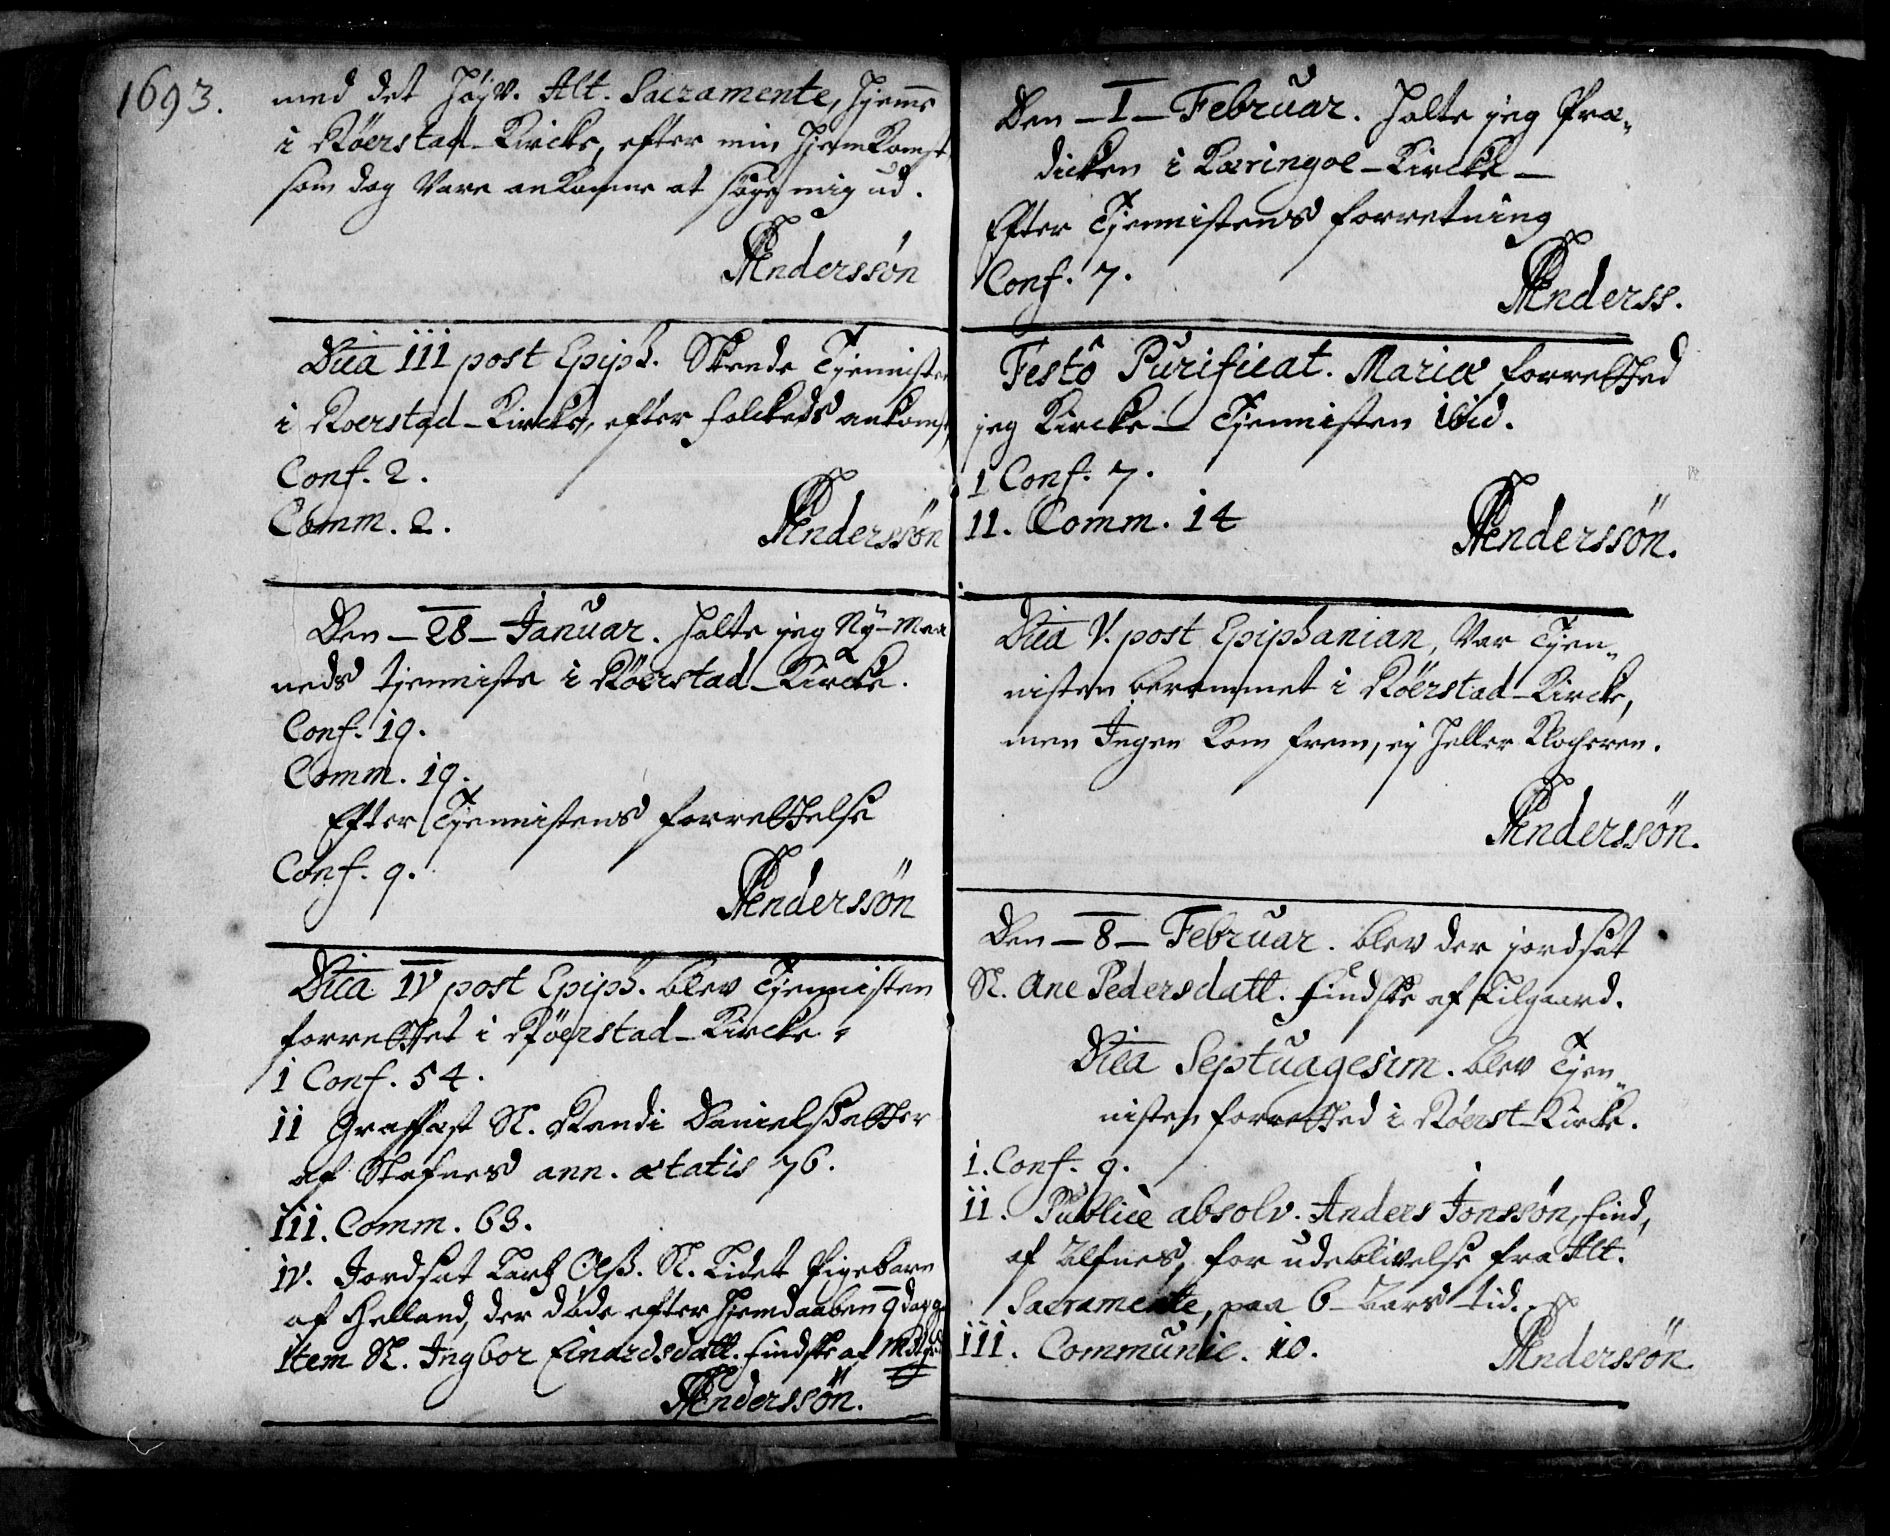 1693.
med det Højv. Alt. Sacramente, Hjemme
i Röerstad-Kircke, efter min Hiemkomst
som dog vare ankomne at søge mig ud.
Anderssøn
Dîca III post Epiph. Skeede Tjenniste
i Röerstad-Kircke, efter folckeds ankomst,
Conf. 2.
Comm. 2.
Anderssøn
Den – 28 – Januar. holte jeg Ny-Maa
neds tjenniste i Röerstad-Kircke.
Conf. 19.
Comm. 19.
Efter Tjennistens forrettelse
Conf. 9.
Anderssøn
Dîca IV post Epiph. blev Tjennisten
forrettet i Röerstad-Kircke.
i Conf. 54.
ii Graffæst S. Randi Danielsdatter
af Stafnes ann. ætatis 76.
iii. Comm. 63.
iv. Jordsat Olß. S. Lidet Pigebarn
af Helland, der døde efter Hjemdaaben 9 dage.
Item S. Ingbor Einardsdatt. Findske af
Anderssøn.
Den – I – Februar. holte jeg Præ-
dicken i Kæringoe-Kircke –
Efter Tjennistens forretning
Conf. 7.
Anderss.
Festô Purificat. Mariæ forretted
jeg Kircke-Tjennisten ibid.
1 Conf. 7.
11. Comm. 14
Anderssön.
Dîca V. post Epiphanian, var Tjen-
nisten berammet i Röerstad-Kircke,
men Ingen kom frem, ej heller Klocheren.
Anderssön.
Den – 8 – Februar. blev der jordsat
S. Ane Pedersdatt. Findske af Kilgaard.
Dîca Septuagesim. blev Tjen-
nisten forretted i Röerst-Kircke.
i. Conf. 9.
ii. Publicè absolv. Anders Jonssøn, Find,
af Ulfnes, for udeblivelse fra Alt.
Sacramente, paa 6-Aars tid.
iii. Communic. 10.
Anderssön